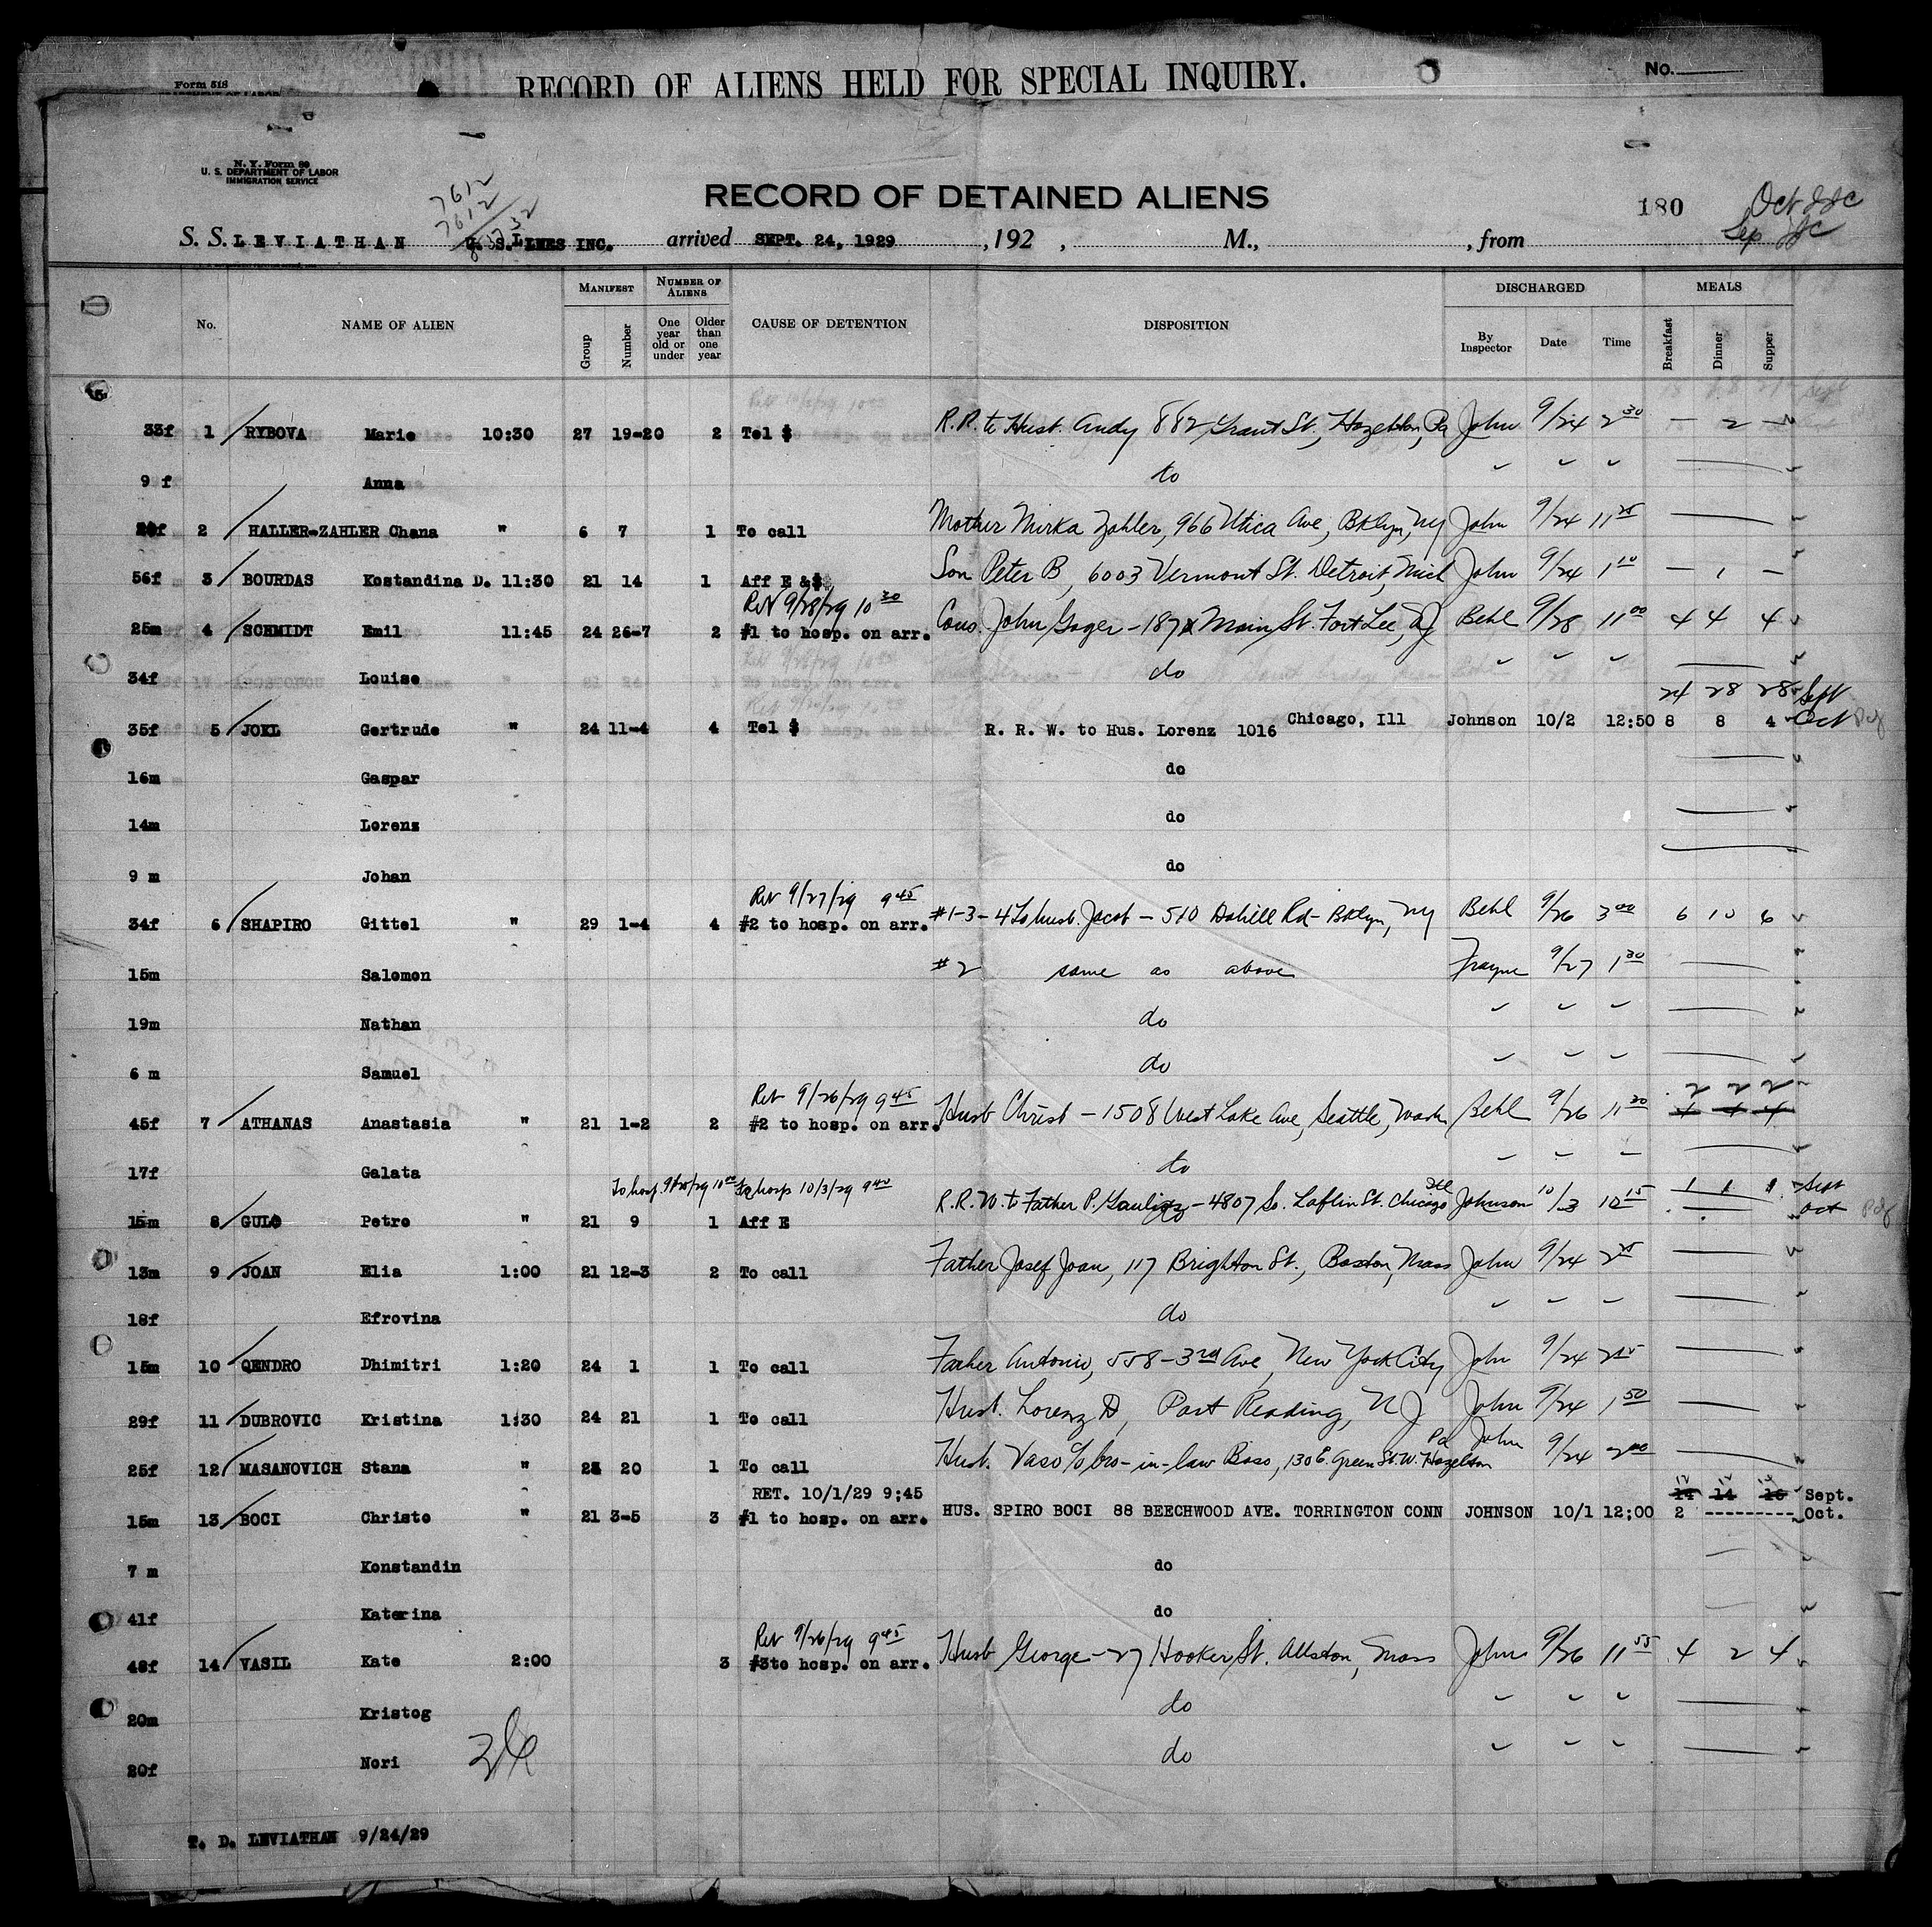 Form 518
RECORD OF ALIENS HELD FOR SPECIAL INQUIRY.
No.
N. Y. Form 89
U. S. DEPARTMENT OF LABOR
IMMIGRATION SERVICE
7612
7612
RECORD OF DETAINED ALIENS
180
Oct
Sep
S. S. LEVIATHAN U. S. LINES INC. arrived SEPT. 24, 1929, 192 , M., , from
No. NAME OF ALIEN MANIFEST Group Number NUMBER OF ALIENS One year old or under Older than one year CAUSE OF DETENTION DISPOSITION DISCHARGED By Inspector Date Time MEALS Breakfast Dinner Supper
33f 1 RYBOVA Marie 10:30 27 19-20 2 Tel $ R.R. to Husb. Andy 882 Grant St., Hazelton, Pa John 9/24 2 30 — 2 —
9 f Anna do
2 HALLER-ZAHLER Chana " 6 7 1 To call Mother Mirka Zahler, 966 Utica Ave, Bklyn, NY John 9/24 11 25
56f 3 BOURDAS Kostandina D. 11:30 21 14 1 Aff E & $ Son Peter B, 6003 Vermont St. Detroit, Mich John 9/24 1 10 — 1 —
Ret 9/28/29 10 30
25m 4 SCHMIDT Emil 11:45 24 26-7 2 #1 to hosp. on arr. Cous. John Gager - 187 Main St. Fort Lee, NJ Behl 9/28 11 00 4 4 4
34f Louise do
24 28 28 Sept
35f 5 JOKL Gertrude " 24 11-4 4 Tel $ R. R. W. to Hus. Lorenz 1016 Chicago, Ill Johnson 10/2 12:50 8 8 4 Oct
16m Gaspar do
14m Lorenz do
9 m Johan do
Ret 9/27/29 9 45
34f 6 SHAPIRO Gittel " 29 1-4 4 #2 to hosp. on arr. #1-3-4 to husb. Jacob - 510 Dahill Rd - Bklyn, NY Behl 9/26 3 00 6 10 6
15m Salomon #2 same as above Frayne 9/27 1 30
19m Nathan do
6 m Samuel do
Ret 9/26/29 9 45 2 2 2
45f 7 ATHANAS Anastasia " 21 1-2 2 #2 to hosp. on arr. Husb Christ - 1508 West Lake Ave, Seattle, Wash Behl 9/26 11 30 4 4 4
17f Galata do
To hosp. 9/25/29 10 00 To hosp 10/3/29 9 40
15m 8 GULO Petro " 21 9 1 Aff E R.R.W. to Father P. - 4807 So. Laflin St. Chicago Ill Johnson 10/3 12 15 1 1 1 Sept
Oct
13m 9 JOAN Elia 1:00 21 12-3 2 To call Father Josef Joan, 117 Brighton St., Boston, Mass John 9/24 2 25
18f Efrovina do
15m 10 QENDRO Dhimitri 1:20 24 1 1 To call Father Antonio, 558-3rd Ave, New York City John 9/24 2 15
29f 11 DUBROVIC Kristina 1:30 24 21 1 To call Husb. Lorenz D, Port Reading, NJ John 9/24 1 50
25f 12 MASANOVICH Stana " 20 1 To call Husb. Vaso c/o bro-in-law Baso, 130 E. Green St. W. Hazelton Pa John 9/24 2 00
RET. 10/1/29 9:45 12 12 14
14 14 16 Sept.
15m 13 BOCI Christo " 21 3-5 3 #1 to hosp. on arr. HUS. SPIRO BOCI 88 BEECHWOOD AVE. TORRINGTON CONN JOHNSON 10/1 12:00 2 --------- Oct.
7 m Konstandin do
41f Katerina do
Ret 9/26/29 9 45
48f 14 VASIL Kate 2:00 3 #3 to hosp. on arr. Husb George - 27 Hooker St. Allston, Mass John 9/26 11 55 4 2 4
20m Kristog do
20f Nori do
T. D. LEVIATHAN 9/24/29